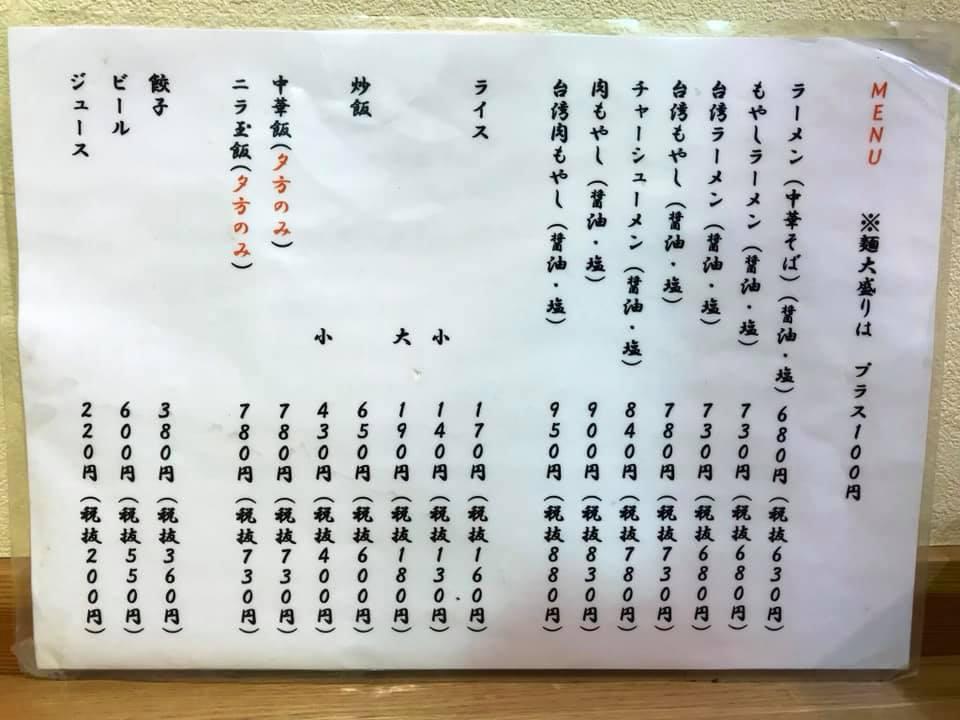 MENU ※麺大盛りは プラス100円
ラーメン(中華そば)(醤油・塩) 680円(税抜630円)
もやしラーメン(醤油・塩) 730円(税抜680円)
台湾ラーメン(醤油・塩) 730円(税抜680円)
台湾もやし(醤油・塩) 780円(税抜730円)
チャーシューメン(醤油・塩) 840円(税抜780円)
肉もやし(醤油・塩) 900円(税抜830円)
台湾肉もやし(醤油・塩) 950円(税抜880円)
ライス 170円(税抜160円)
小 140円(税抜130円)
大 190円(税抜180円)
炒飯 650円(税抜600円)
小 430円(税抜400円)
中華飯(夕方のみ) 780円(税抜730円)
ニラ玉飯(夕方のみ) 780円(税抜730円)
餃子 380円(税抜360円)
ビール 600円(税抜550円)
ジュース 220円(税抜200円)